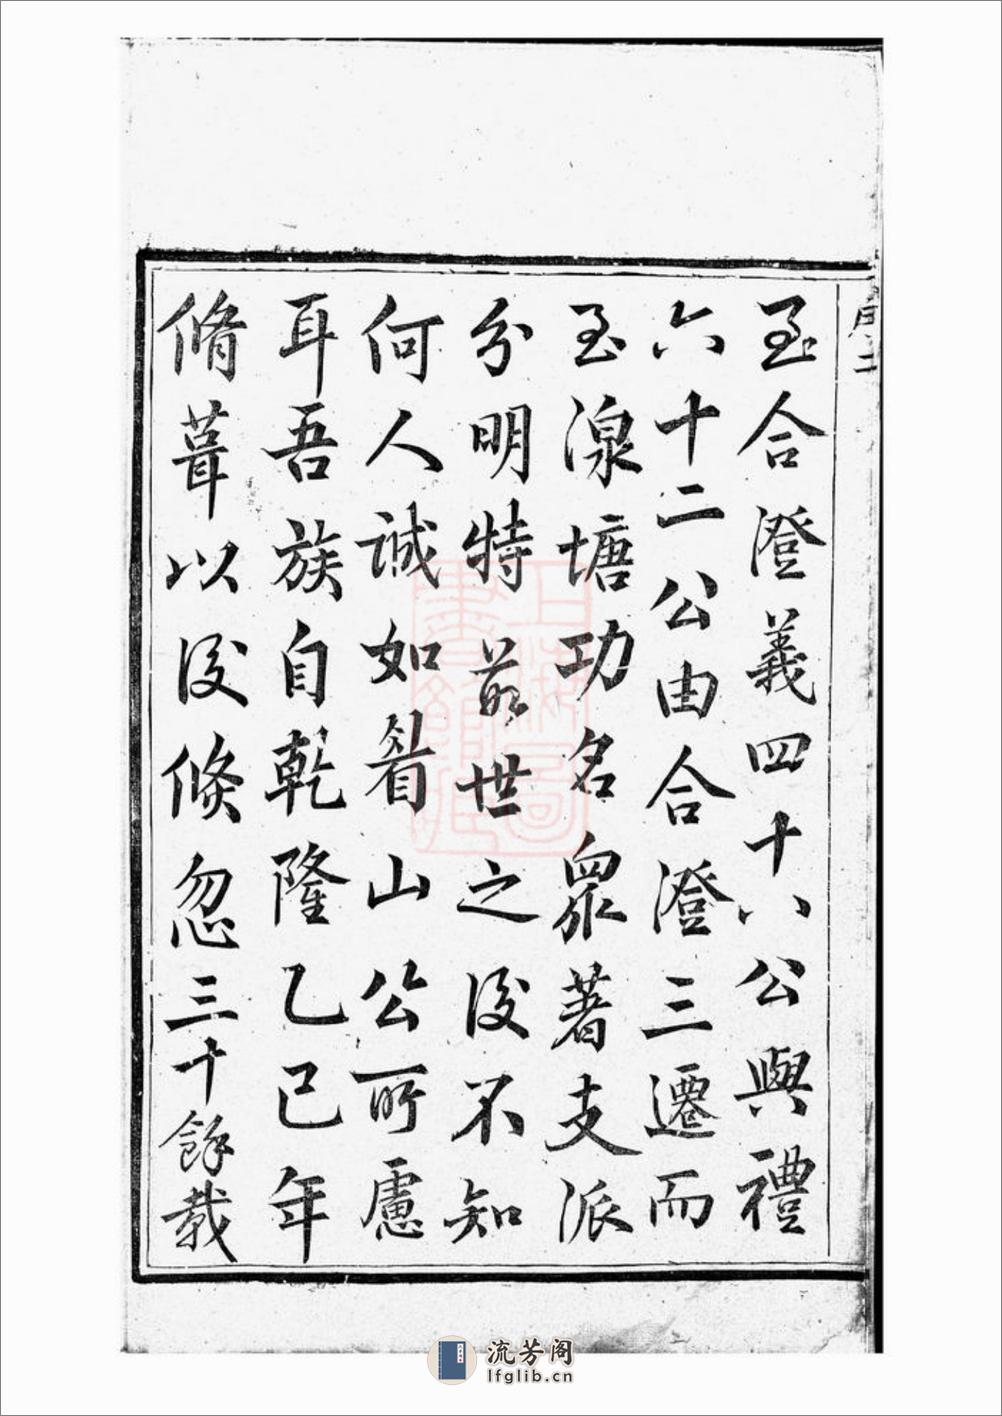 至合澄義四十八公與禮
六十二公由合澄三遷而
至湶塘功名眾著支派
分明特前世之後不知
何人誠如眉山公所慮
耳吾族自乾隆乙巳年
脩葺以後倏忽三十餘载
上海圖書館藏
流芳阁
lfglib.cn